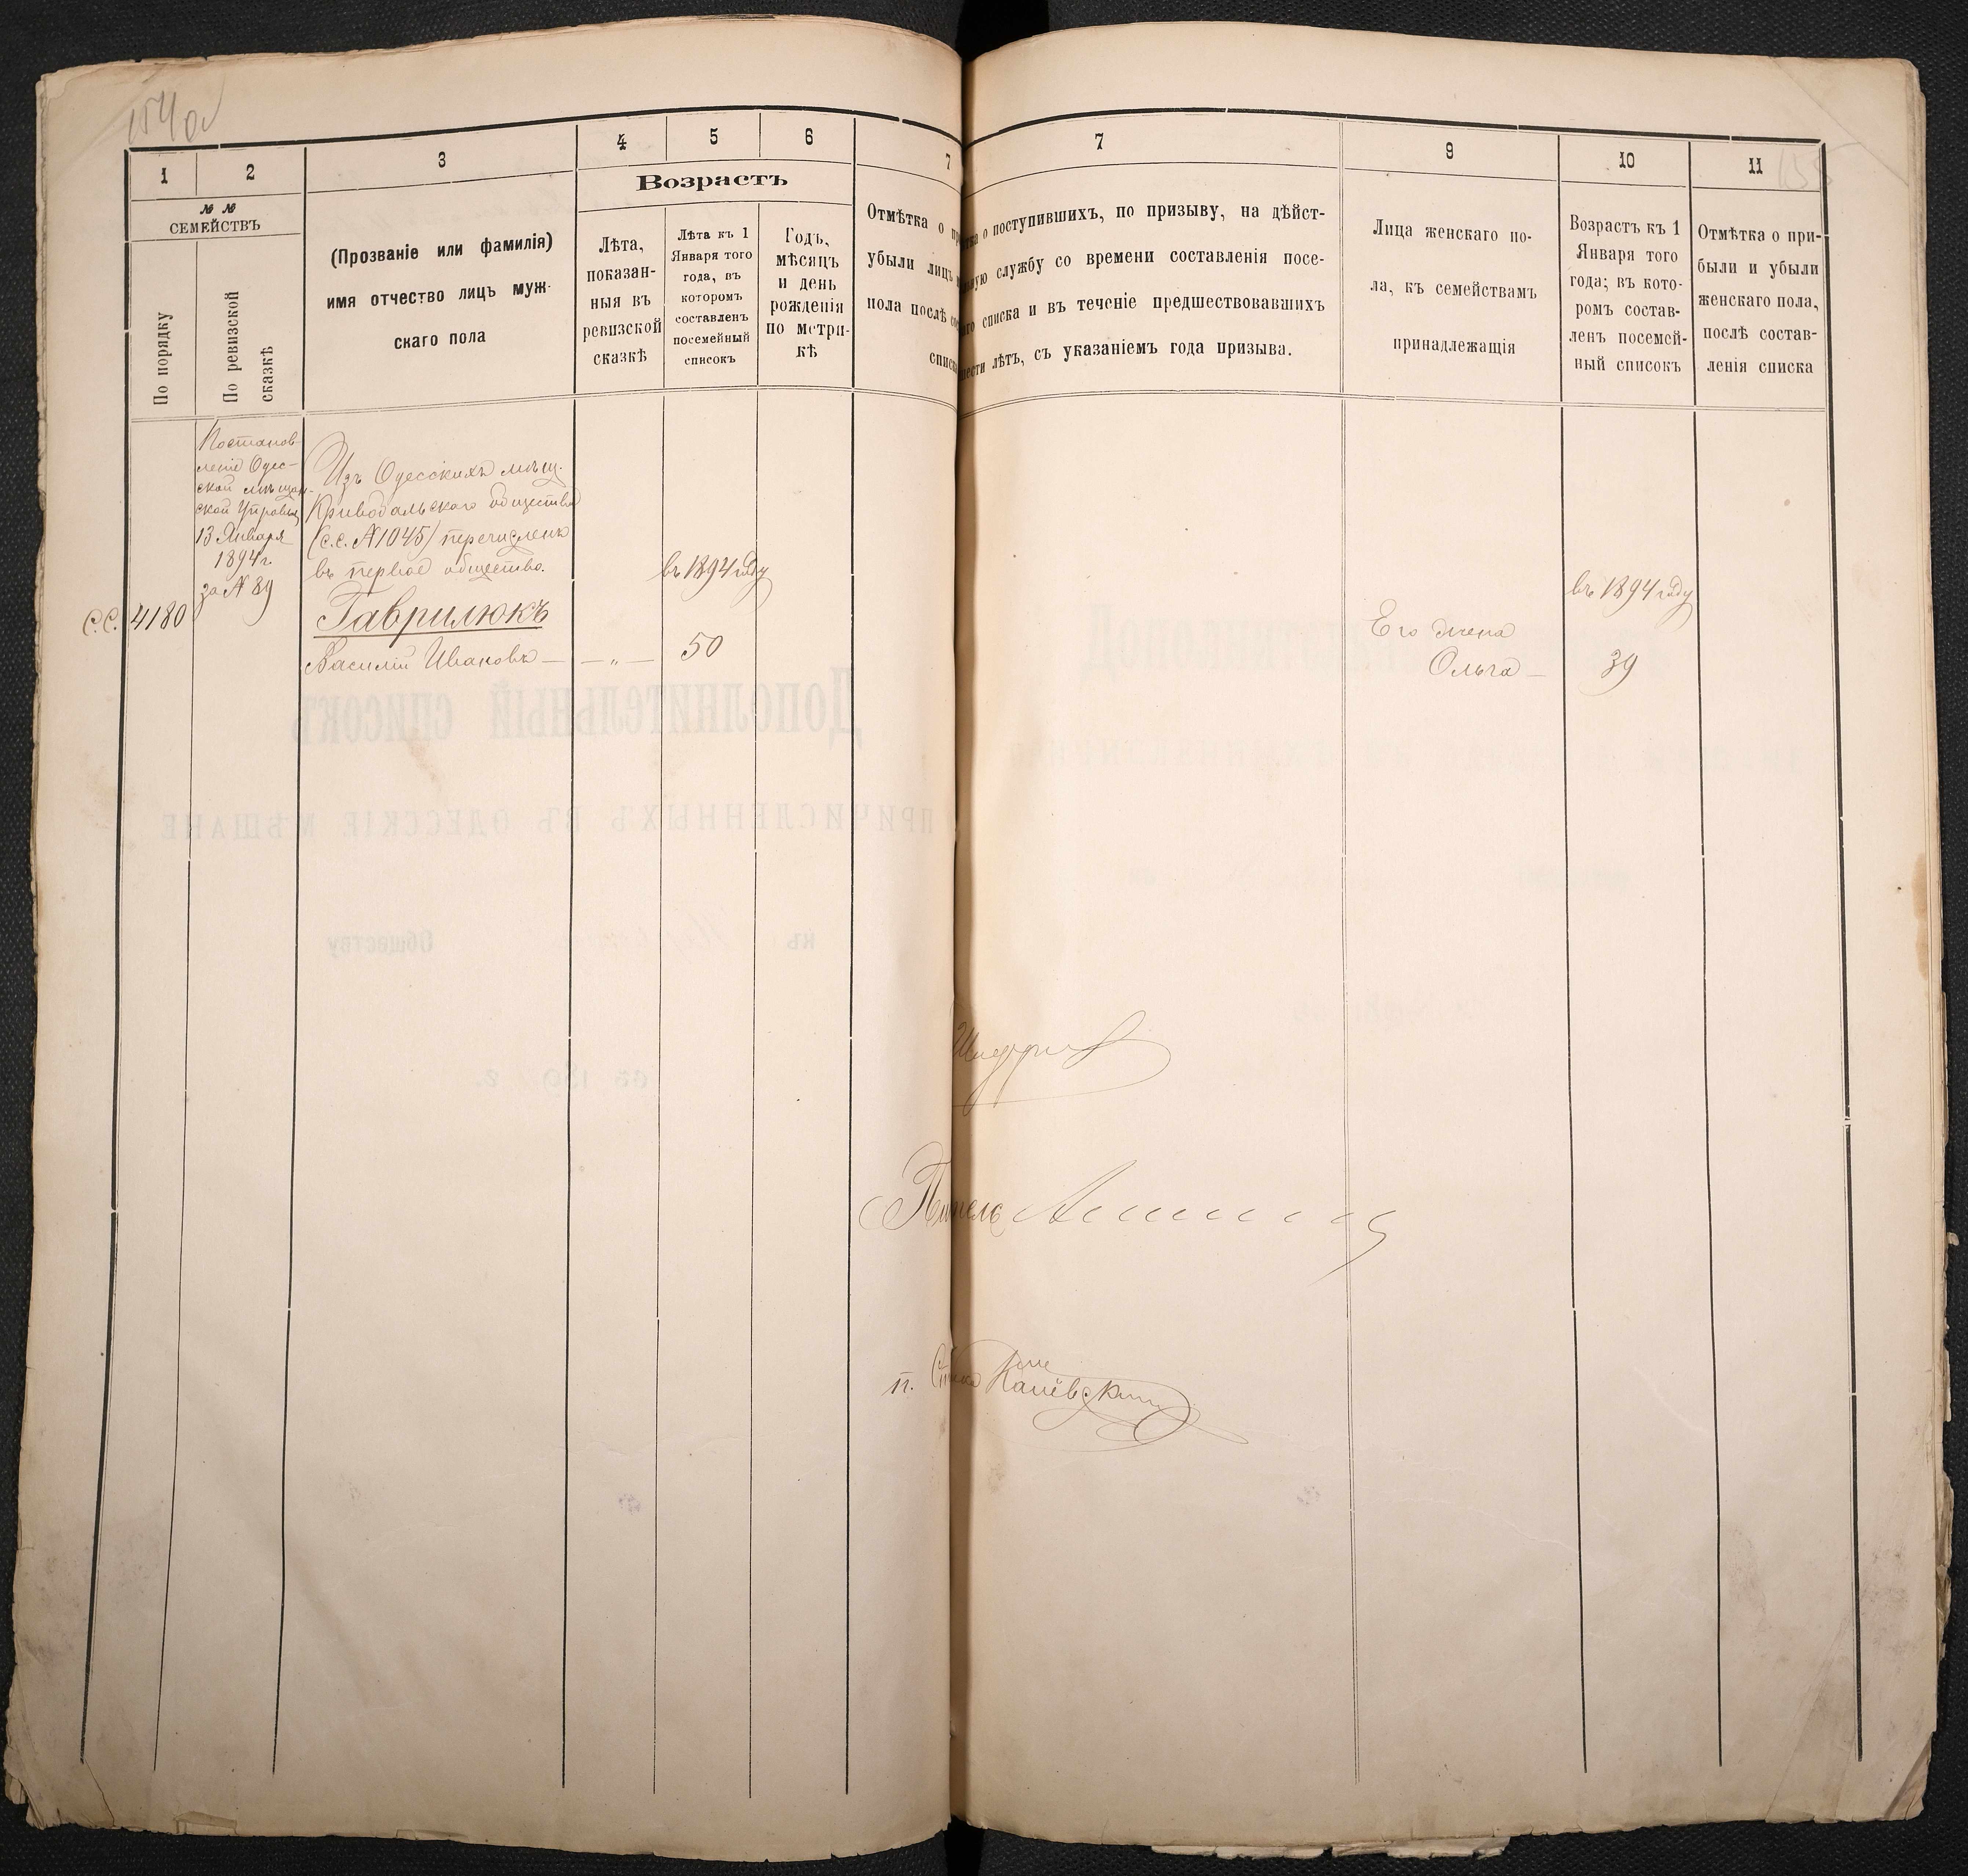 154 об
1
2
3
4
5
6
7
№ №
СЕМЕЙСТВЪ
По порядку
По ревизской
сказкѣ
(Прозваніе или фамилія)
имя отчество лицъ муж-
скаго пола
Возрастъ
Лѣта,
показан-
ныя въ
ревизской
сказкѣ
Лѣта къ 1
Января того
года, въ
которомъ
составленъ
посемейный
списокъ
Годъ,
мѣсяцъ
и день
рожденія
по метри-
кѣ
Отмѣтка о пр
убыли лицъ
пола послѣ со
списка
Постанов-
леніе Одес-
ской мѣщан-
ской Управы
13 Января
1894 г.
за № 89
С.С. 4180
Изъ Одесскихъ мѣщ.
Кривобальскаго общества
(с.с. № 1045) перечисленъ
въ первое общество.
Гаврилюкъ
Василій Ивановъ — — „ —
въ 1894 году
50
7
9
10
11
155
о поступившихъ, по призыву, на дѣйст-
ную службу со времени составленія посе-
списка и въ теченіе предшествовавшихъ
шести лѣтъ, съ указаніемъ года призыва.
Лица женскаго по-
ла, къ семействамъ
принадлежащія
Возрастъ къ 1
Января того
года; въ кото-
ромъ состав-
ленъ посемей-
ный списокъ
Отмѣтка о при-
были и убыли
женскаго пола,
послѣ состав-
ленія списка
Его жена
Ольга —
въ 1894 году
39
п.